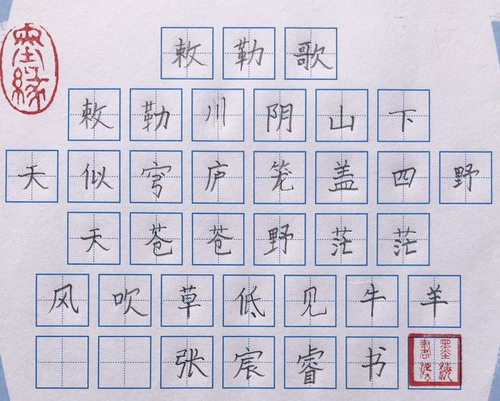 墨緣
敕勒歌
敕勒川阴山下
天似穹庐笼盖四野
天苍苍野茫茫
风吹草低见牛羊
张宸睿书